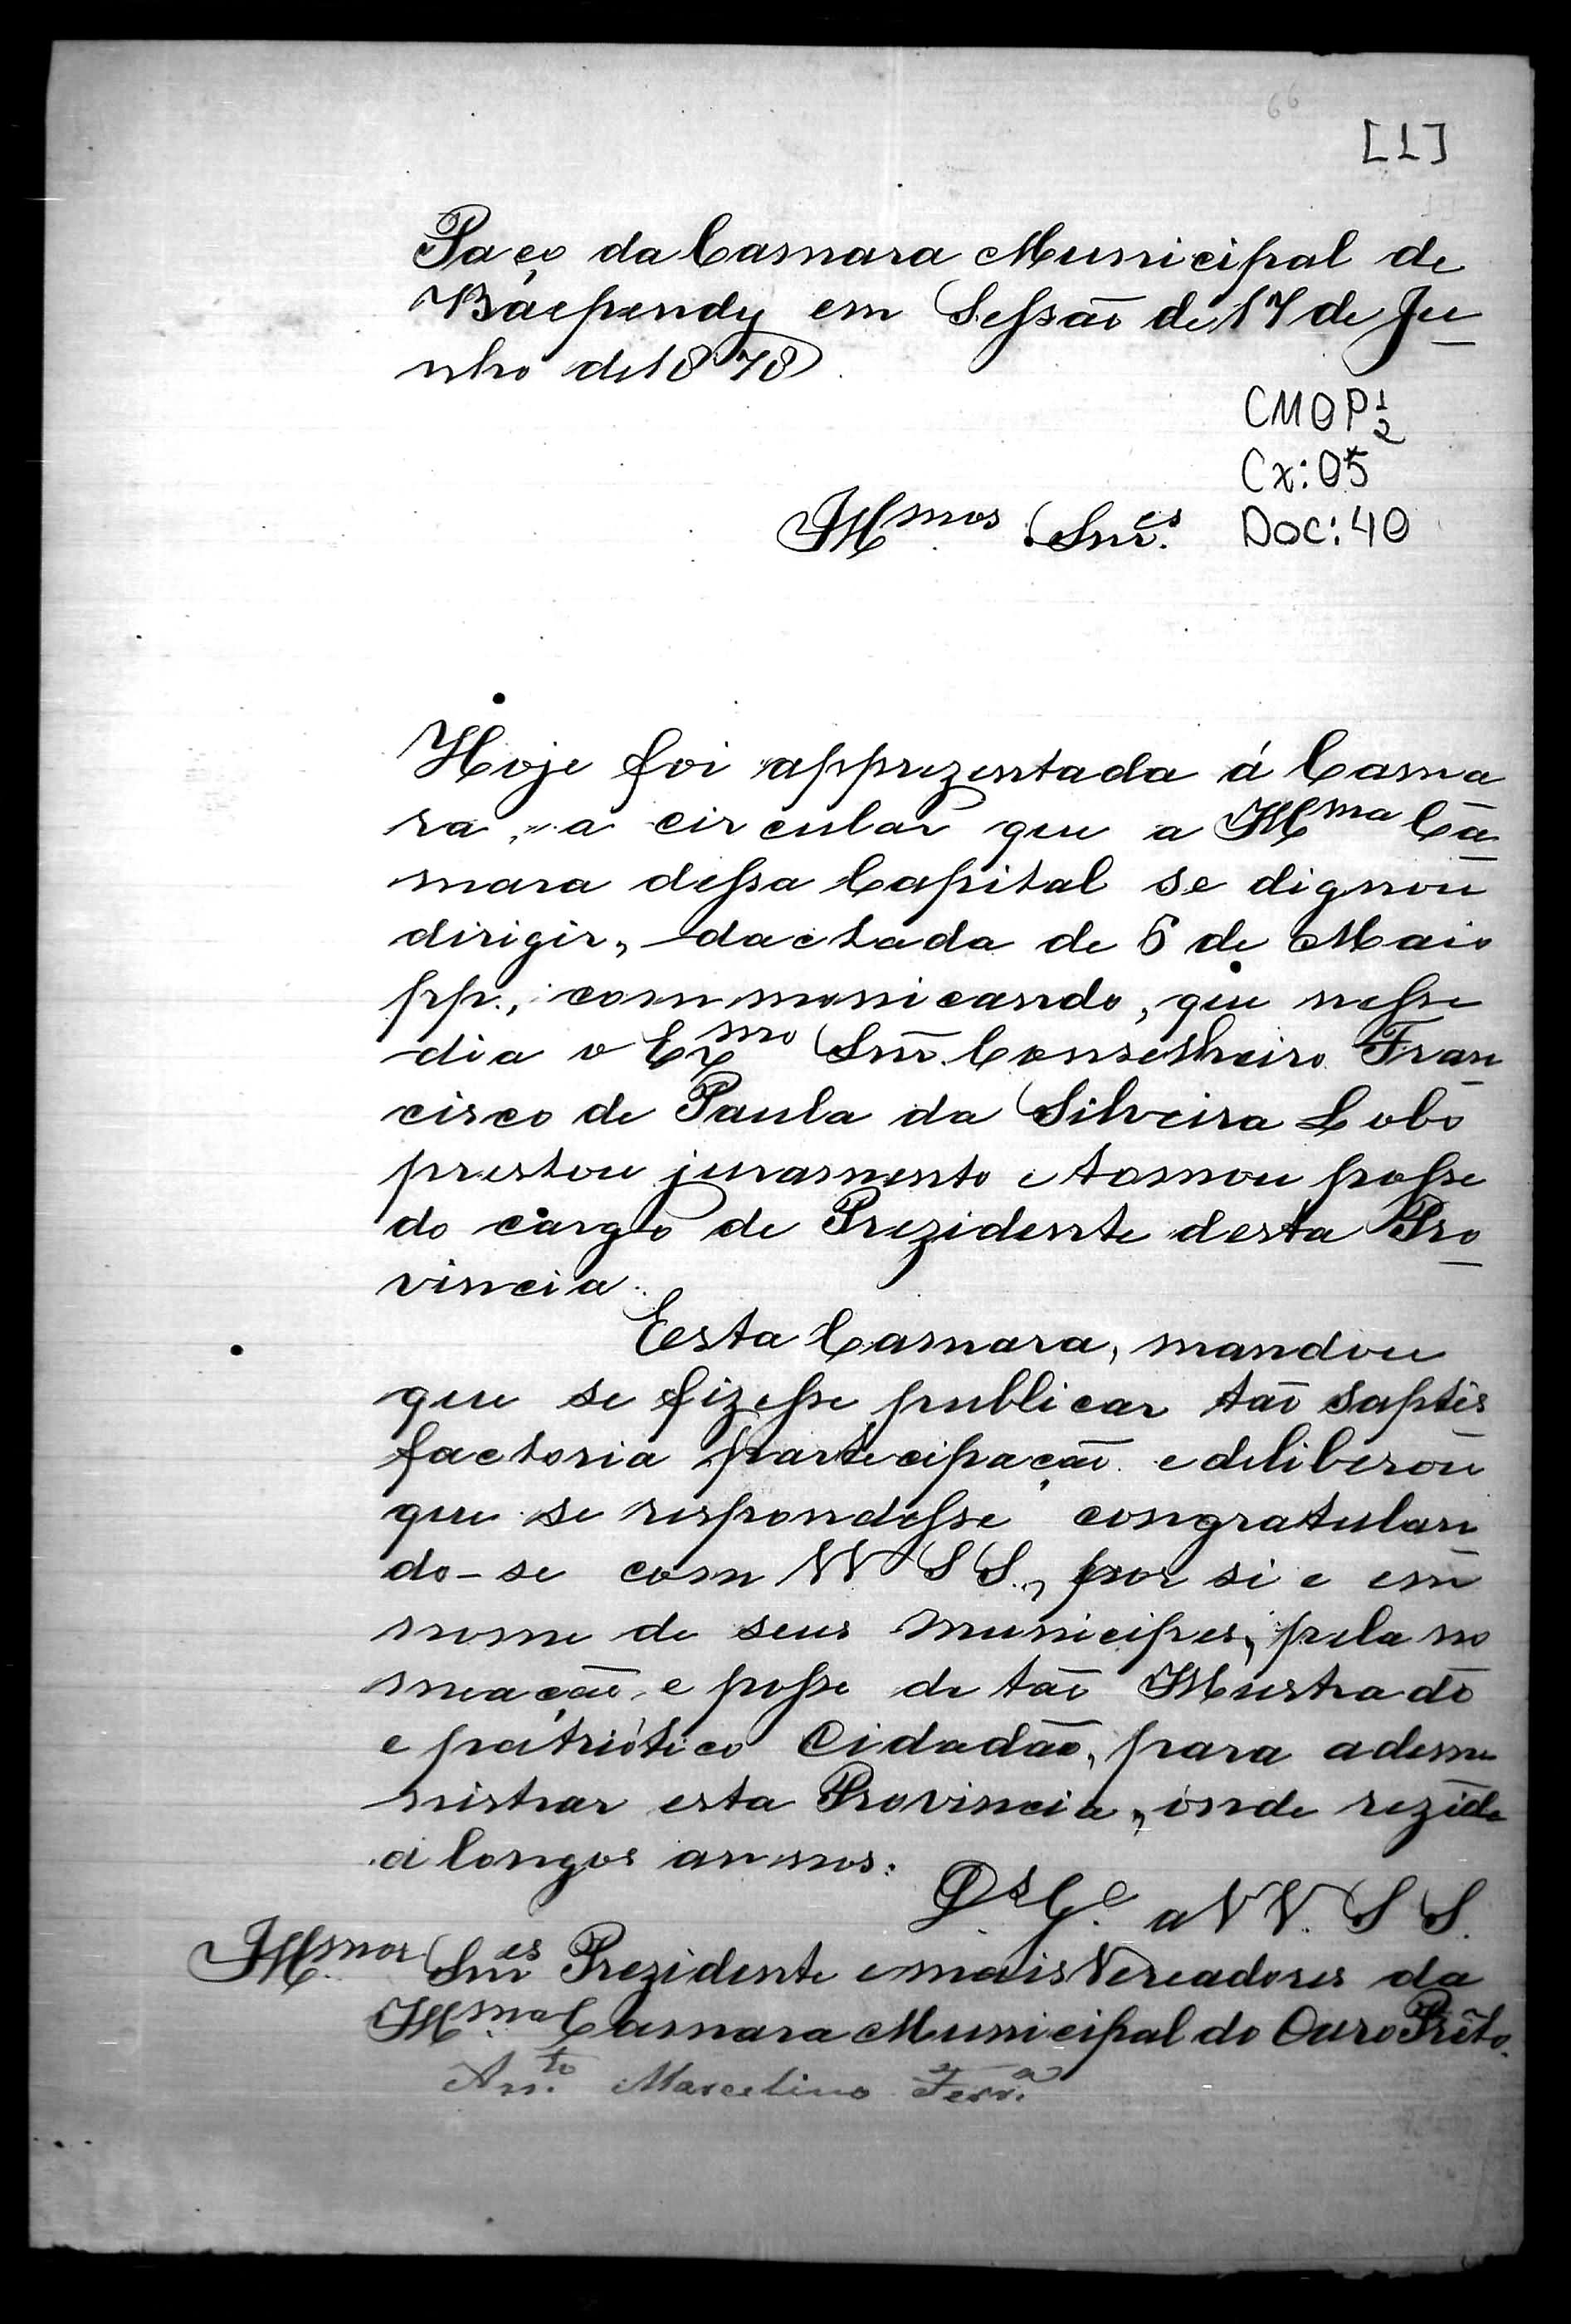 66
[1]
Paço da Camara Municipal de
Báependy em Sessaõ de 17 de Ju
nho de 1878.
CMOP 1/2
Cx: 05
Illmos. Snr.es
Doc: 40
Hoje foi apprezentada á Cama
ra, a circular que a Illma Ca
mara dessa Capital se dignou
dirigir, dactada de 6 de Maio
pp., communicando, que nesse
dia o Exmo Snr. Conselheiro Fran
cisco de Paula da Silveira Lobo
prestou juramento e tomou posse
do cargo de Prezidente desta Pro
vincia.
Eesta Camara, mandou
que se fizesse publicar taõ saptis
factoria partecipaçaõ e deliberou
que se respondesse congratulan
do-se com VV SS., por si e em
nome de seus municipes, pela no
meaçaõ, e posse de taõ Illustrado
e patriótico Cidadão, paraademe
nistrar esta Provincia, onde rezide
a longos annos.
Ds. Ge. a VV. SS.
Illmos. Snres Prezidente e mais Vereadores da
Illma. Camara Municipal do Ouro Prêto.
Anto. Marcelino Ferra.